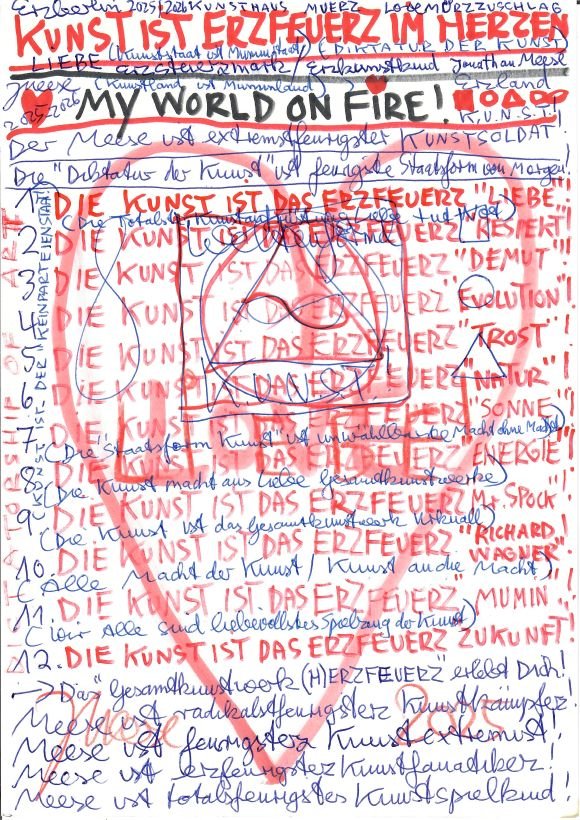 Erzberlin 2025/2026 KUNSTHAUS MUERZ LOBEMÖRZZUSCHLAG
KUNST IST ERZFEUERZ IM HERZEN
LIEBE (Kunststaat ist Muminstaat) (DIKTATUR DER KUNST)
Erzsteiermark / Erzkunstkind Jonathan Meese
Meese (Kunstland ist Muminland) Erzland
2025-2026 MY WORLD ON FIRE!
K.U.N.S.T.!
Der Meese ist extremstfeurigster KUNSTSOLDAT!
Die "Diktatur der Kunst" ist feurigste Staatsform von Morgen!
1. DIE KUNST IST DAS ERZFEUERZ "LIEBE"!
2. DIE KUNST IST DAS ERZFEUERZ "RESPEKT"!
3. DIE KUNST IST DAS ERZFEUERZ "DEMUT"!
4. DIE KUNST IST DAS ERZFEUERZ "EVOLUTION"!
5. DIE KUNST IST DAS ERZFEUERZ "TROST"!
6. DIE KUNST IST DAS ERZFEUERZ "NATUR"!
7. DIE KUNST IST DAS ERZFEUERZ "SONNE"!
(Die "Staatsform Kunst" ist unwählbarste Macht ohne Macht)
8. DIE KUNST IST DAS ERZFEUERZ "ENERGIE"!
(Die Kunst macht aus Liebe Gesamtkunstwerke)
9. DIE KUNST IST DAS ERZFEUERZ "Mr. SPOCK"!
(Die Kunst ist das Gesamtkunstwerk Urknall)
10. DIE KUNST IST DAS ERZFEUERZ "RICHARD WAGNER"!
(Alle Macht der Kunst / Kunst an die Macht)
11. DIE KUNST IST DAS ERZFEUERZ "MUMIN"!
(Wir Alle sind liebevollstes Spielzeug der Kunst)
12. DIE KUNST IST DAS ERZFEUERZ ZUKUNFT!
→ Das "Gesamtkunstwerk (H)ERZFEUERZ" erlebt Dich!
Meese ist radikalstfeurigsterz Kunstkämpferz!
Meese ist feurigsterz Kunstextremist!
Meese ist erzfeurigsterz Kunstfanatiker!
Meese ist totalsfeurigstes Kunstspielkind!
Meese 2025
DICTATORSHIP OF ART